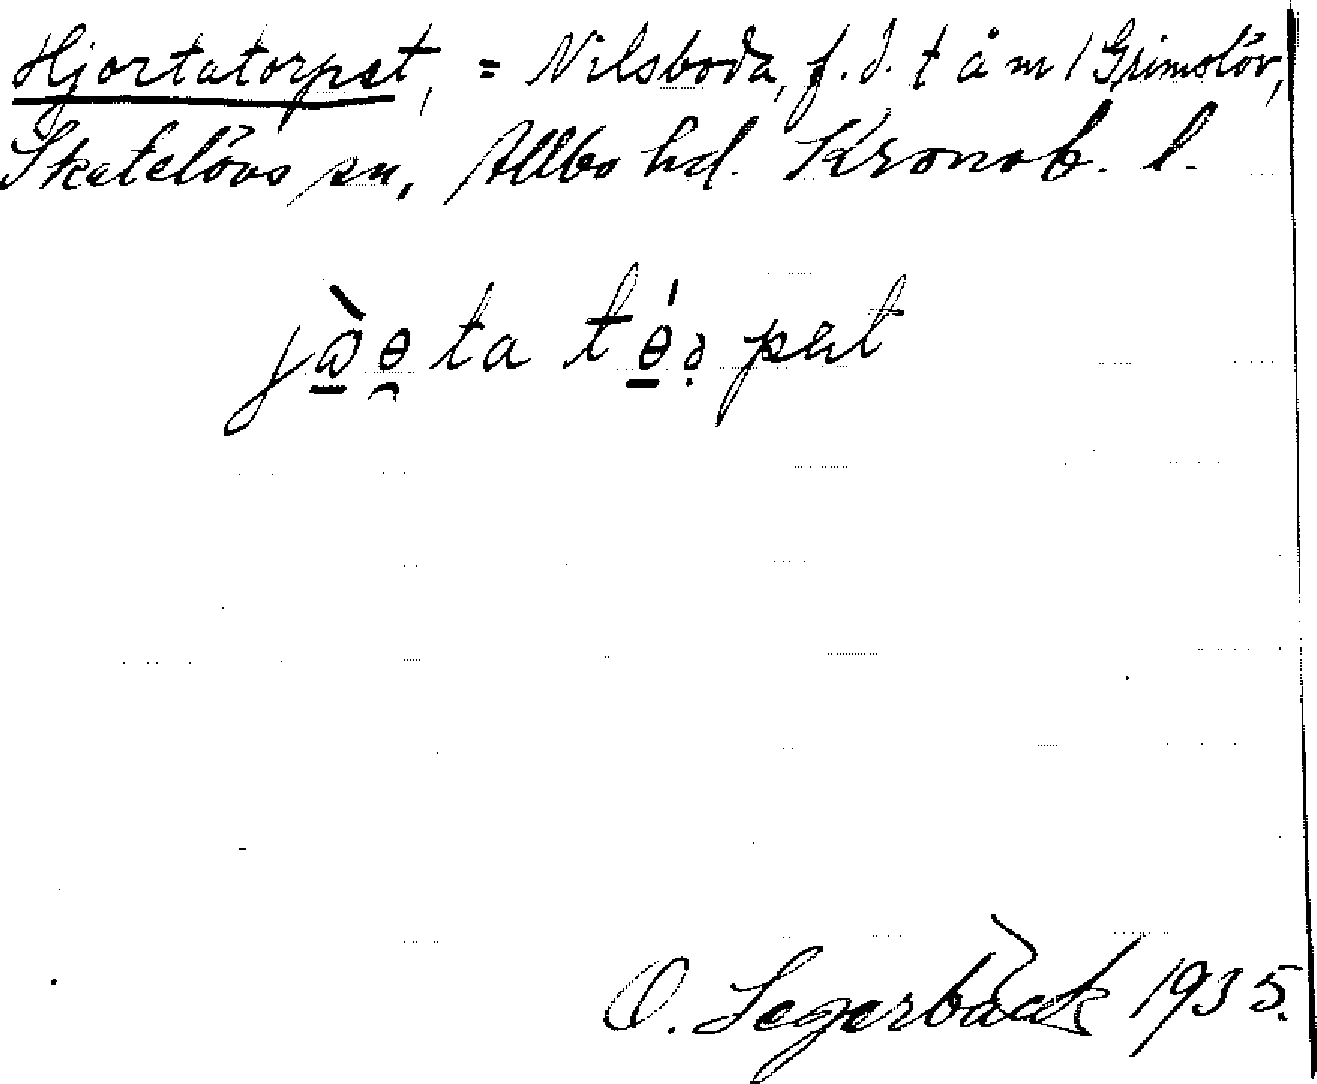 Hjortatorpet, = Nilsboda, f.d. t å m / Grimslöv,
Skatelövs sn, Allbo hd. Kronob. l.
O. Segerbäck 1935.